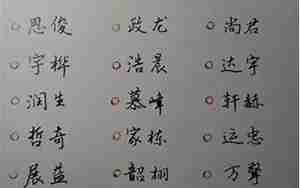 思俊 政龙 尚君
宇桦 浩晨 达宇
润生 慕峰 轩赫
哲奇 家栋 运忠
展益 韶栩 万声